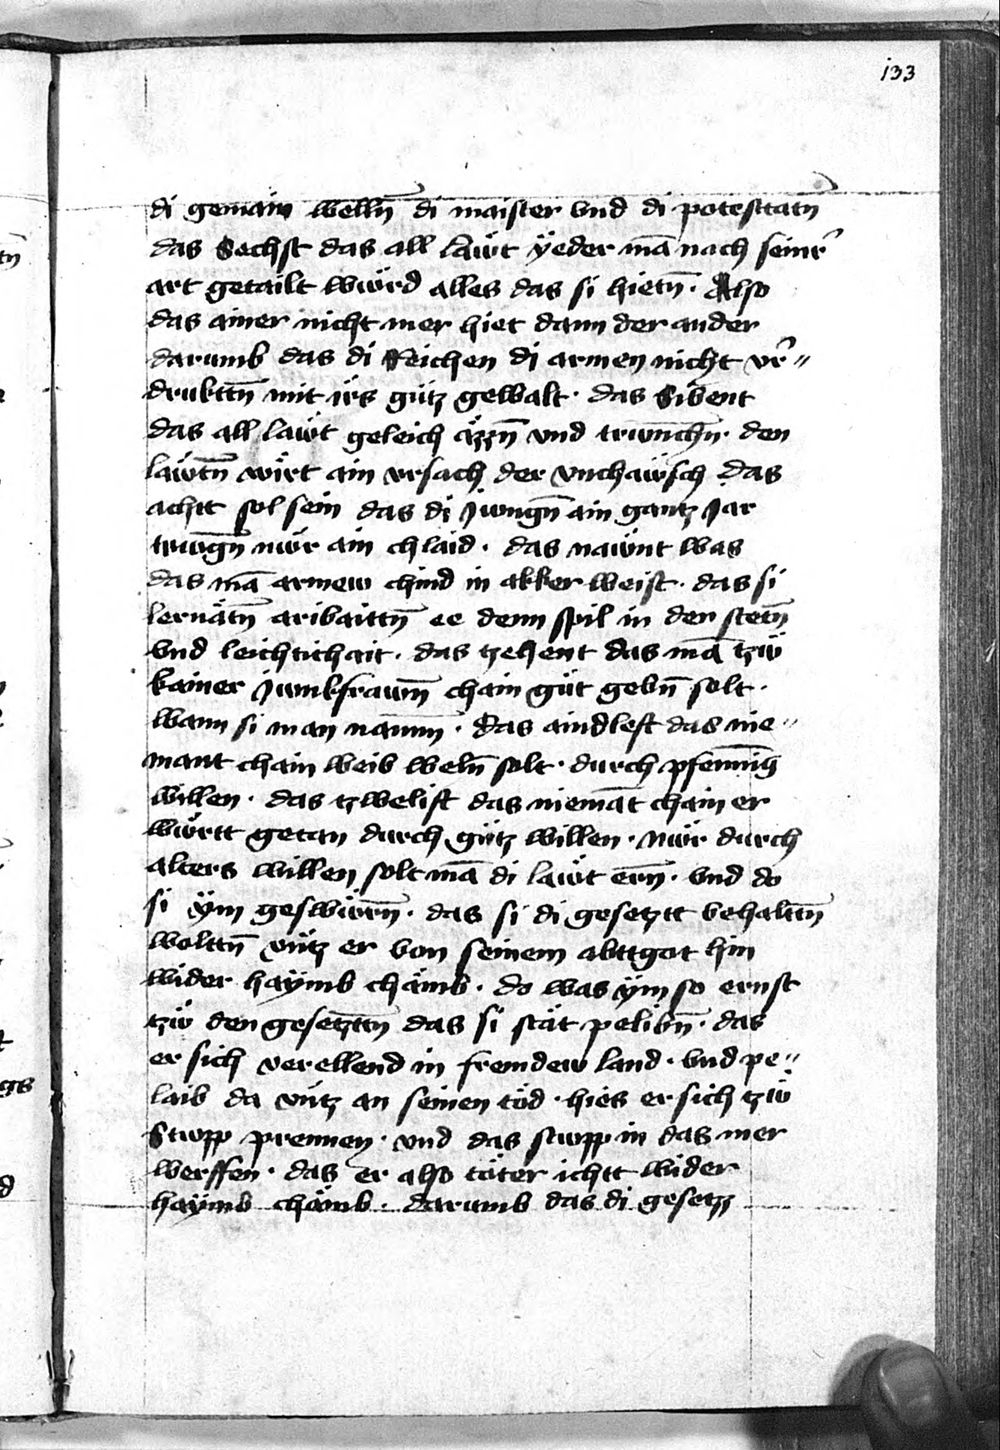 133
di gemain welln̄ di maister vnd di potesttatn̄
das Sechst das all läwt ÿeder mā nach seinr̄
art getailt würd alles das si hietn̄ . Also
das ainer nicht mer hiet dann der ander
darumb das di Reichen di armen nicht vr̄〃
drukttn̄ mit irs gütz gewalt . das Sibent
das all läwt geleich äzzn̄ vnd trwnchn̄ . den
läwtn̄ wirt ain vrsach der vnchawsch das
achtt sol sein das di Jwngn̄ ain gantz Jar
trwgn̄ nwr ain chlaid . das nawnt was
das mā armew chind in akker weist . das si
lernätn̄ aribaittn̄ ee denn spil in den stetn̄
vnd leichtichait . das tzehent das mā tzw
kainer Jwnkfrawn̄ chain güt gebn̄ solt .
wann si man namm̄ . das aindlest das nie〃
mant chain weib weln̄ solt . durch pfennig
willen . das tzwelift das niemāt chain er
württ getan durch gütz willen . nwr durch
alters willen solt mā di läwt ern̄ . vnd do
si ÿm geswürn̄ . das si di gesetztt behaltn̄
woltn̄ vntz er von seinem abttgot hin
wider haÿmb chämb . do was ÿm so ernst
tzw den gesetzttn̄ das si stät pelibn̄ . das
er sich verellend in fremdew land . vnd pe〃
laib da vntz an seinen töd . hies er sich tzw
Stwpp prennen . vnd das stwpp in das mer
werffen . das er also töter ichtt wider
haÿmb chämb . darumb das di gesetz